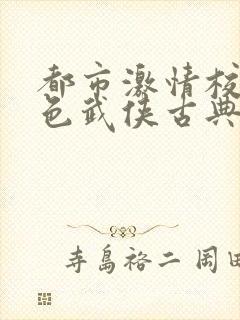 都市激情校
色武侠古典
寺島裕二 岡田